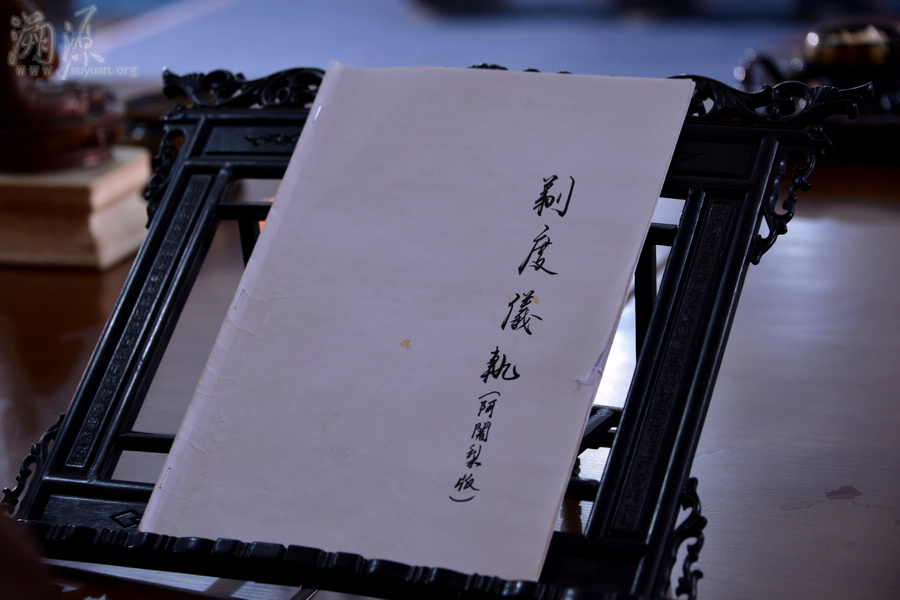 溯源
www.suyuan.org
剃度儀軌(阿闍梨版)